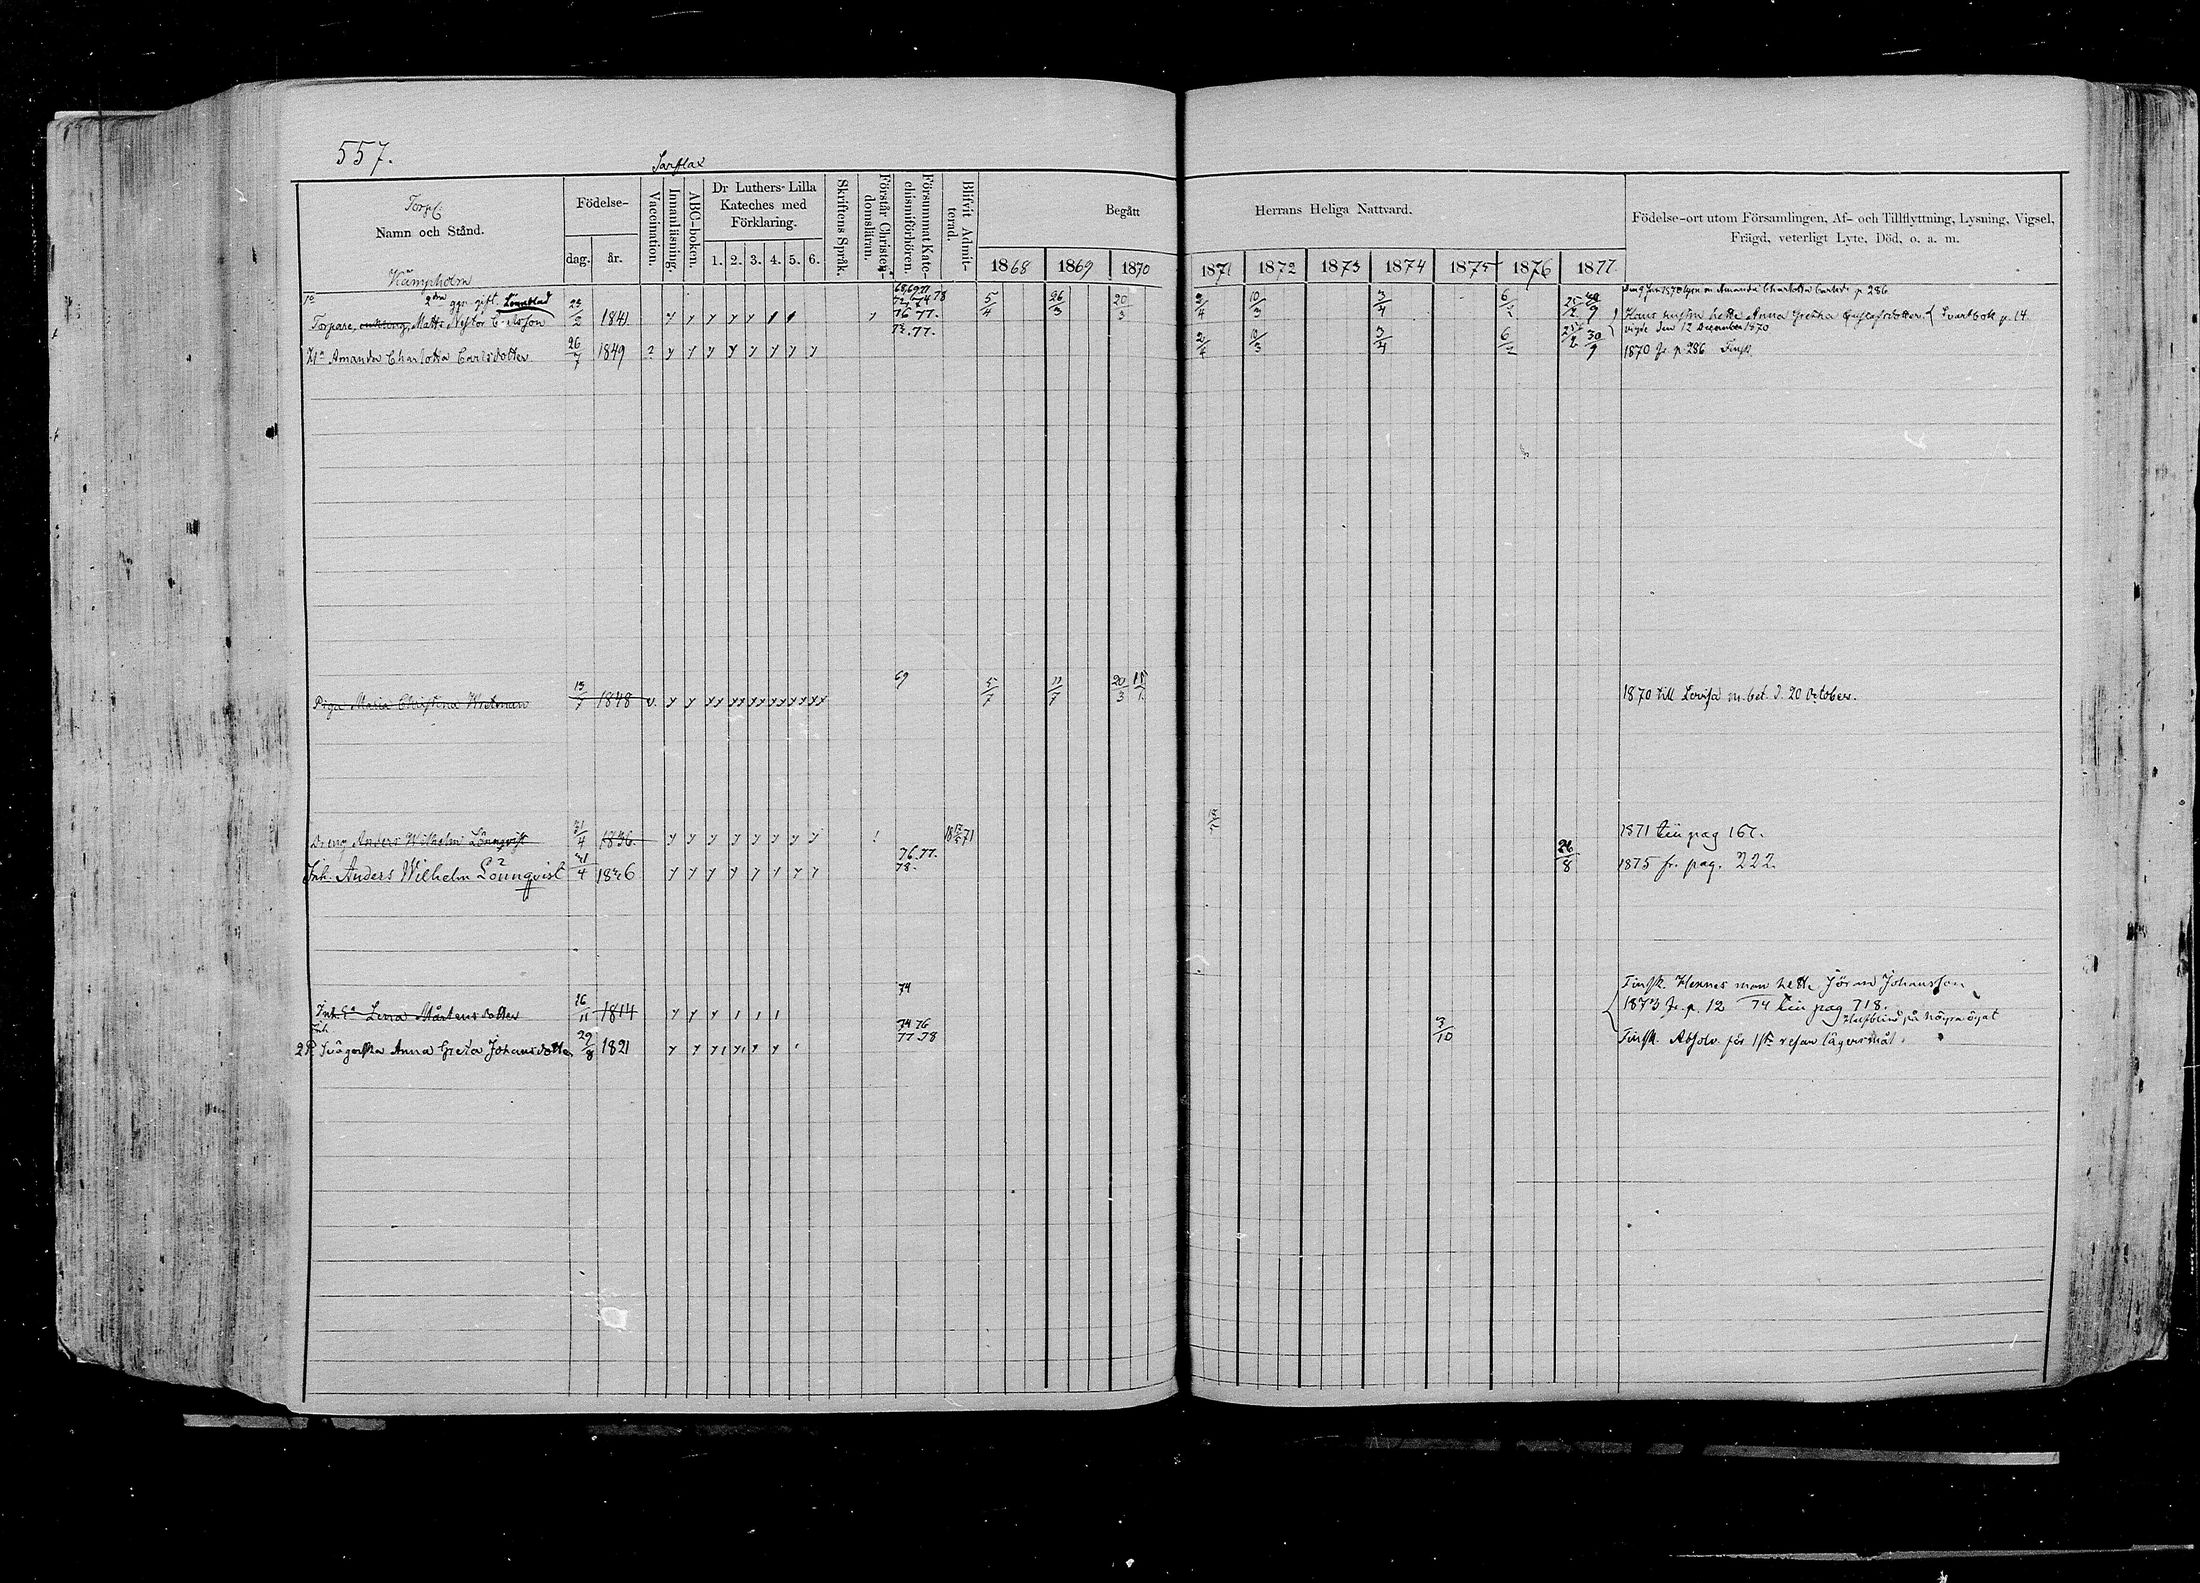 557.
Sarflax
Torp
Namn och Stånd.
Födelse-
dag. år.
Vaccination.
Innanläsning.
ABC-boken.
Dr Luthers Lilla Kateches med Förklaring.
1. 2. 3. 4. 5. 6.
Skriftens Språk.
Förstår Christendomsläran.
Försummat Katechismiförhören.
Blifvit Admitterad.
Begått Herrans Heliga Nattvard.
1868 1869 1870 1871 1872 1873 1874 1875 1876 1877
Födelse-ort utom Församlingen, Af- och Tillflyttning, Lysning, Vigsel, Frägd, veterligt Lyte, Död, o. a. m.
Kämpholm
ggr gift. Lönnblad
Torpare, enkling, Matts Nestor Carlsson 23/2 1841 y y y y y 5/4 26/3 20/3 2/4 10/3 3/4 6/2 25/2 30/9
Amanda Charlotta Carlsd. p 286
Hans hustru hette Anna Gretha Gustafsdotter. Svartbok p. 14
vigde den 12 December 1870
Hu Amanda Charlotta Carlsdotter 26/7 1849 2 y y y y y y y y 2/4 10/3 3/4 6/2 25/2 30/9 1870 fr. p 286 Finsk.
Piga Maria Christina Widman 1848 v. y y yy yy yy yy yy yy 69 5/7 11/7 20/3 1870 till Lovisa m. bet. d. 20 October.
Dreng Anders Wilhelm Lönnqvist 21/4 1836 y y y y y y y y 1871 till pag 167.
Inh. Anders Wilhelm Lönnqvist 21/4 1836 y y y y y y y y 76.77. 78. 26/8 1875 fr. pag. 222.
Finsk. Hennes man hette Jöran Johansson
Inh. Ea Lena Mårtensdotter 26/11 1814 y y y 74 1873 fr. p. 12 74 till pag 718.
Halfblind på högra ögat
Inh. Svägerska Anna Greta Johansdotter 29/8 1821 y y y y y y 74 76 77.78 3/10 Finsk. Absolv. för 1sta resan lägersmål.